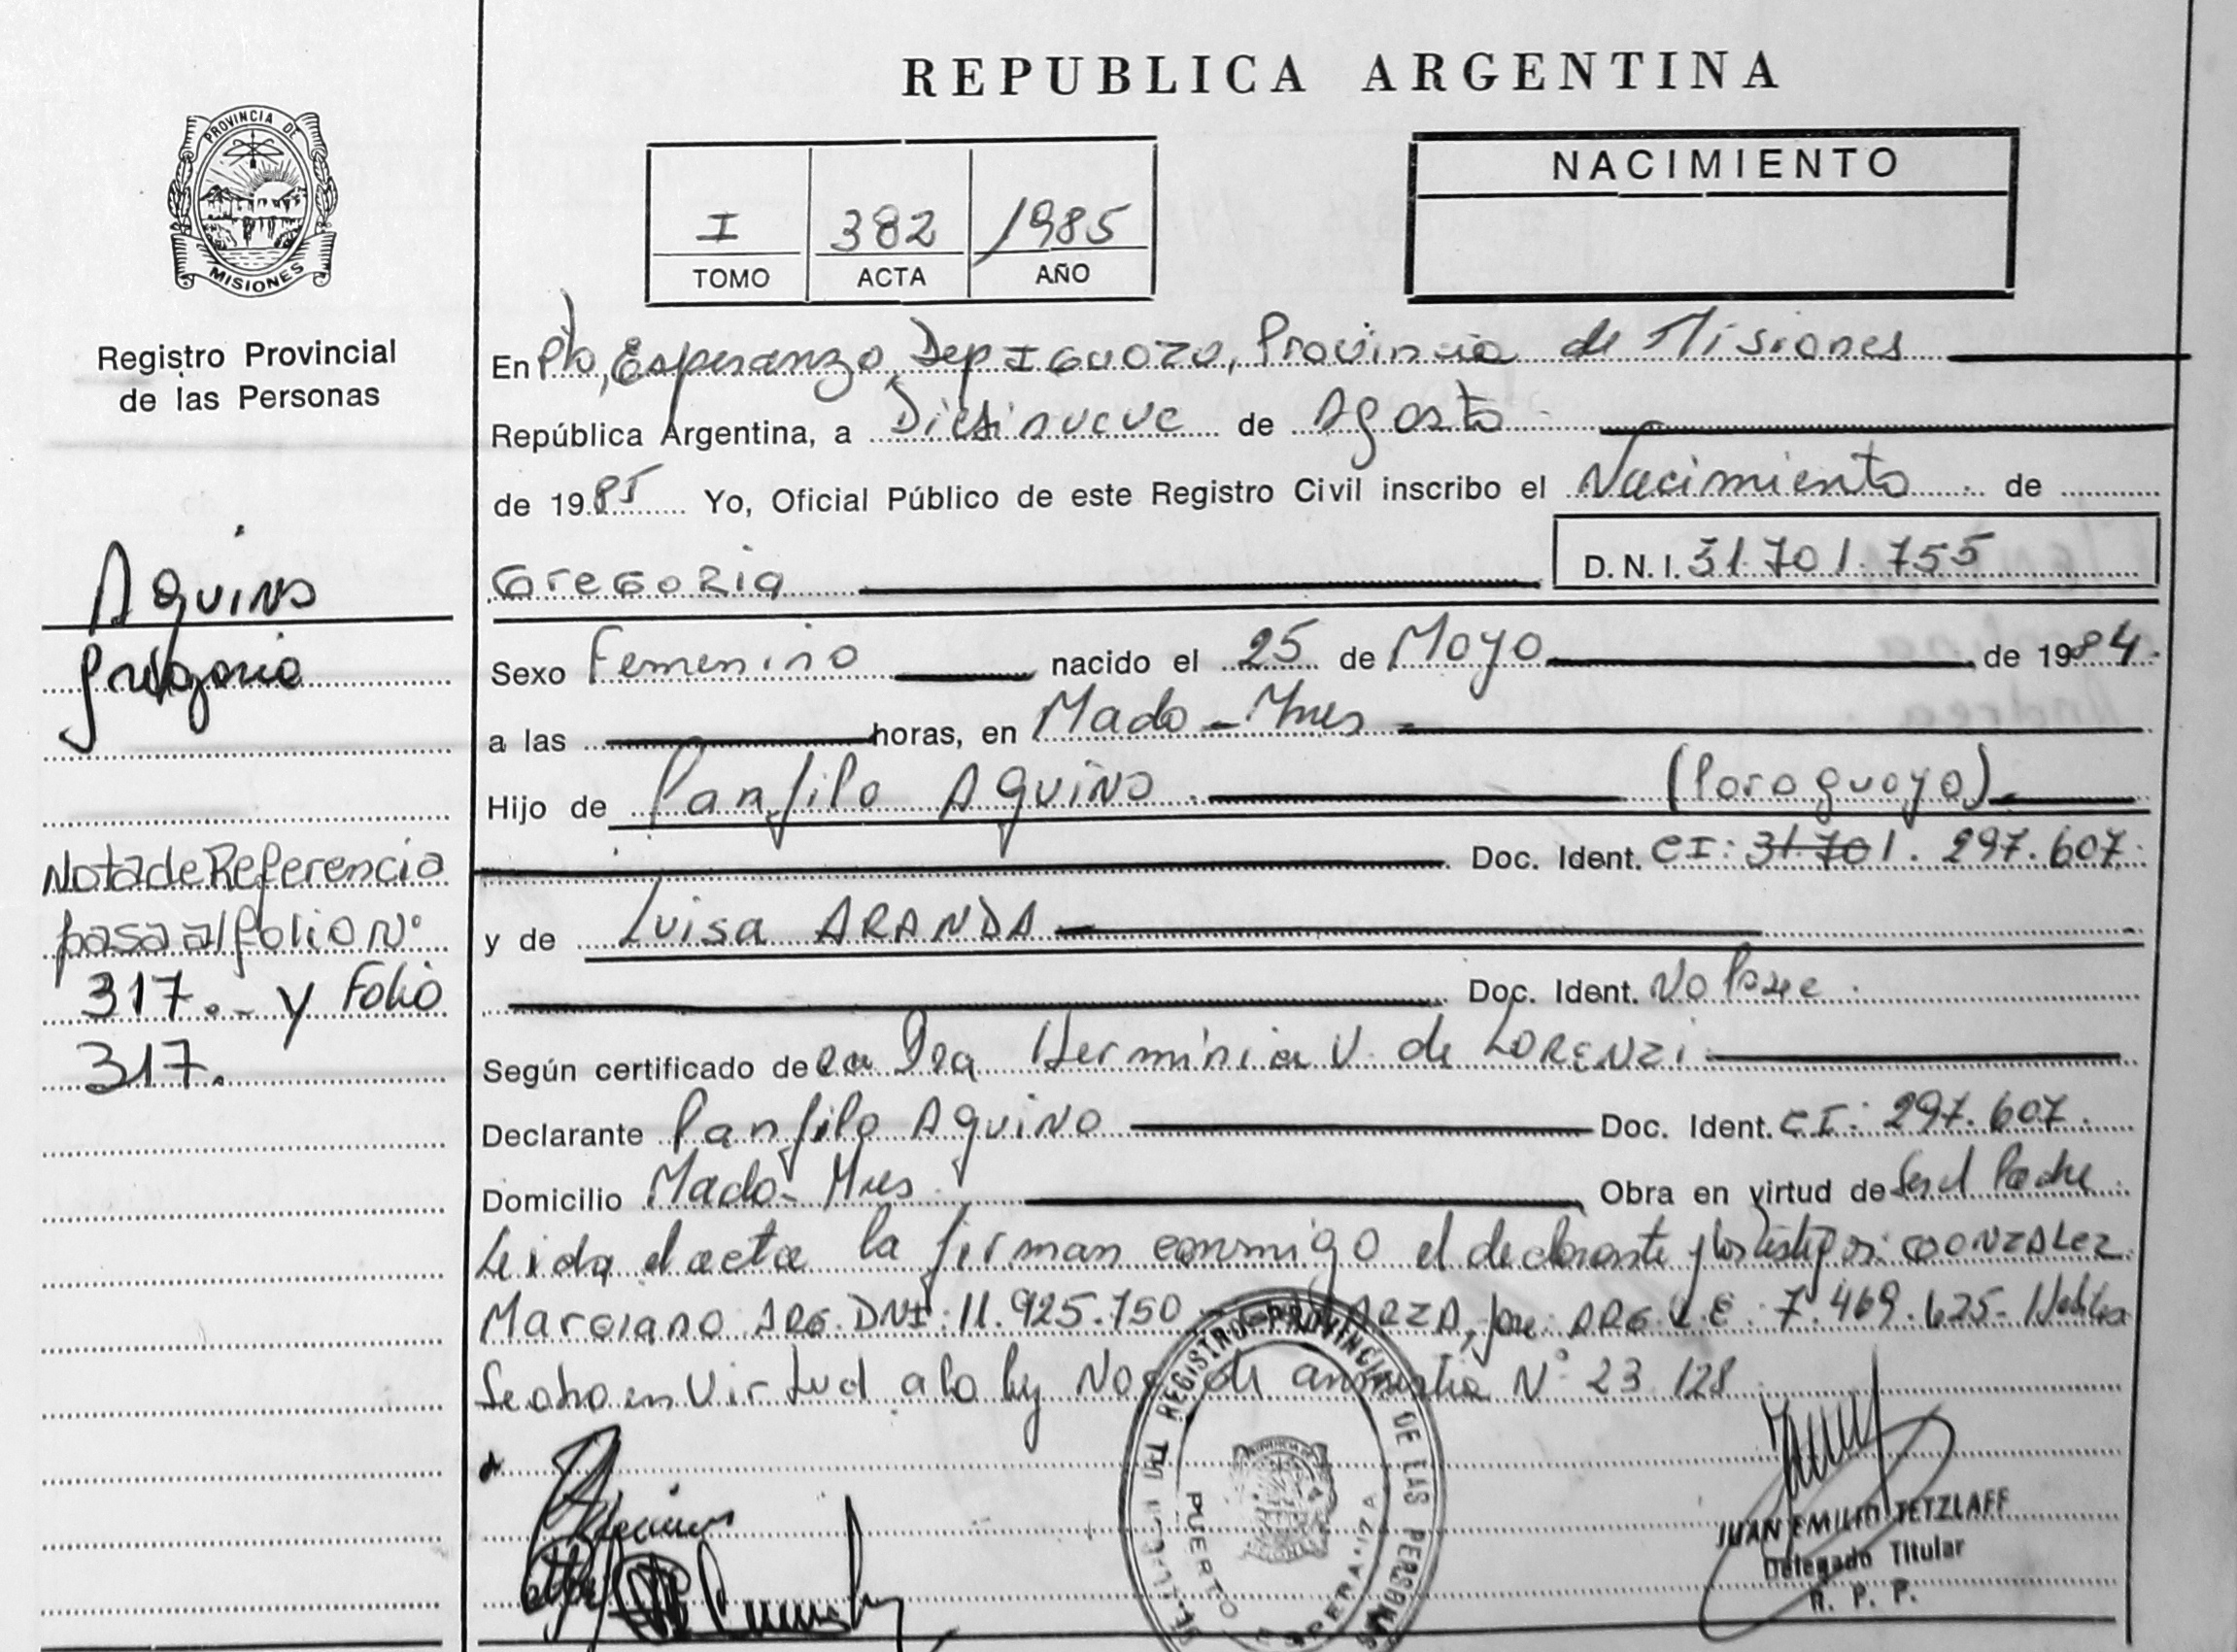 REPUBLICA ARGENTINA
PROVINCIA DE
MISIONES
Registro Provincial
de las Personas
I 382 1985
TOMO ACTA AÑO
NACIMIENTO
En Pto, Esperanza, Dep Iguazu, Provincia de Misiones
República Argentina, a Diesinueve de Agosto
de 1985 Yo, Oficial Público de este Registro Civil inscribo el Nacimiento de
Gregoria D. N. I. 31.701.755
Aquino
Gregoria
Sexo Femenino nacido el 25 de Mayo de 1984.
a las horas, en Mado - Mnes
Hijo de Panfilo Aquino (Paraguayo)
Doc. Ident. CI: 31.701. 297.607.
y de Luisa ARANDA
Doc. Ident. No Posee.
Nota de Referencia
pasa al folio N°
317.- y Folio
317.
Según certificado de la Dra Herminia V. de LORENZI
Declarante Panfilo Aquino Doc. Ident. CI: 297.607.
Domicilio Mado- Mnes Obra en virtud de Ser el Padre
Leida el acta la firman conmigo el declarante y los testigos: GONZALEZ
Marciano ARG. DNI: 11.925.750 José ARG. L.E: 7.469.625-
Se obro en Virtud a la ley Nac de amnistia N° 23.128
REGISTRO PROVINCIAL DE LAS PERSONAS
PUERTO ESPERANZA
JUAN EMILIO TETZLAFF
Delegado Titular
R. P. P.